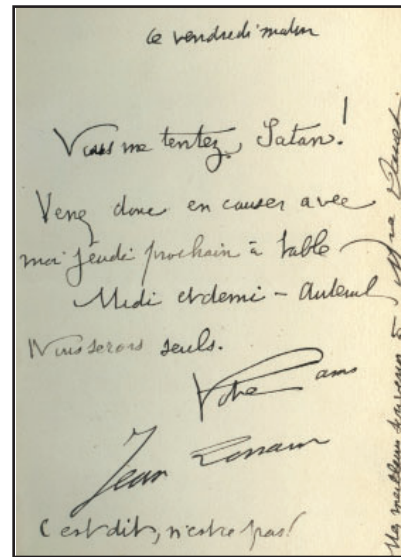 ce vendredi matin
Vous me tentez, Satan!
Venez donc en causer avec
moi jeudi prochain à table
Midi et demi - Auteuil
Nous serons seuls.
Votre ami
Jean Lorrain
C'est dit, n'est-ce pas!
Mes meilleurs souvenirs à Mme